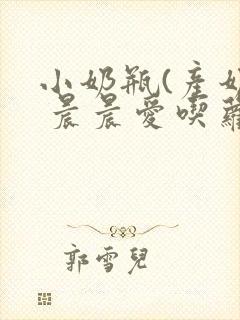 小奶瓶(產奶
晨晨愛喫蘿
郭雪兒